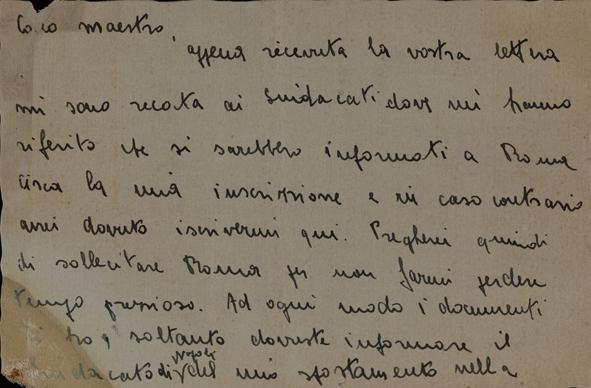 Caro maestro,
appena ricevuta la vostra lettera
mi sono recata ai Sindacati dove mi hanno
riferito che si sarebbero informati a Roma
circa la mia inscrizione e in caso contrario
avrei dovuto iscrivermi qui. Pregherei quindi
di sollecitare Roma per non farmi perdere
tempo prezioso. Ad ogni modo i documenti
li ho, soltanto dovreste informare il
Sindacato di Napoli del mio spostamento nella